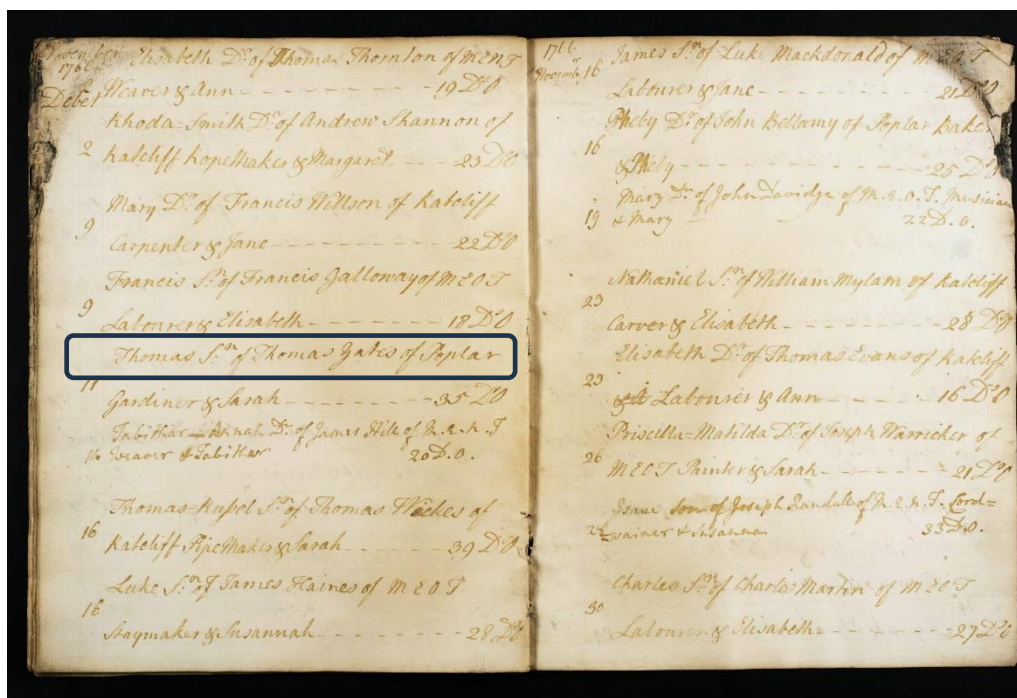 1766 Elisabeth Dr. of Thomas Thornton of M E N T
Weaver & Ann 19 D O
Rhoda-Smith Dr. of Andrew Shannon of
2 Ratcliff RopeMaker & Margaret 23 D O
Mary Dr. of Francis Willson of Ratcliff
9 Carpenter & Jane 22 D O
Francis Sn. of Francis Galloway of M E O T
9 Labourer & Elisabeth 18 D O
Thomas Sn. of Thomas Yates of Poplar
11 Gardiner & Sarah 35 D O
Tabithar-Annah Dr. of James Hile of M. E. N. T
16 Weaver & Tabithar 20 D. O.
Thomas- Sn. of Thomas Weekes of
16 Ratcliff PipeMaker & Sarah 39 D O
Luke Sn. of James Haines of M E O T
16 Staymaker & Susannah 28 D O
1766 James Sn. of Luke Mackdonald of M E O T
16 Labourer & Jane 21 D O
Pheby Dr. of John Bellamy of Poplar Baker
16 & Pheby 25 D O
Mary Dr. of John Davidge of M. E. O. T. Musician
19 & Mary 22 D. O.
Nathaniel Sn. of William Mylam of Ratcliff
23 Carver & Elisabeth 28 D O
Elisabeth Dr. of Thomas Evans of Ratcliff
23 Labourer & Ann 16 D O
Priscilla-Matilda Dr. of Joseph Warricker of
26 M E O T Painter & Sarah 21 D O
Isaac Son of Joseph Randall of M. E. N. T. Cord=
26 wainer & Susanna 33 D. O.
Charles Sn. of Charles Martin of M E O T
30 Labourer & Elisabeth 27 D O